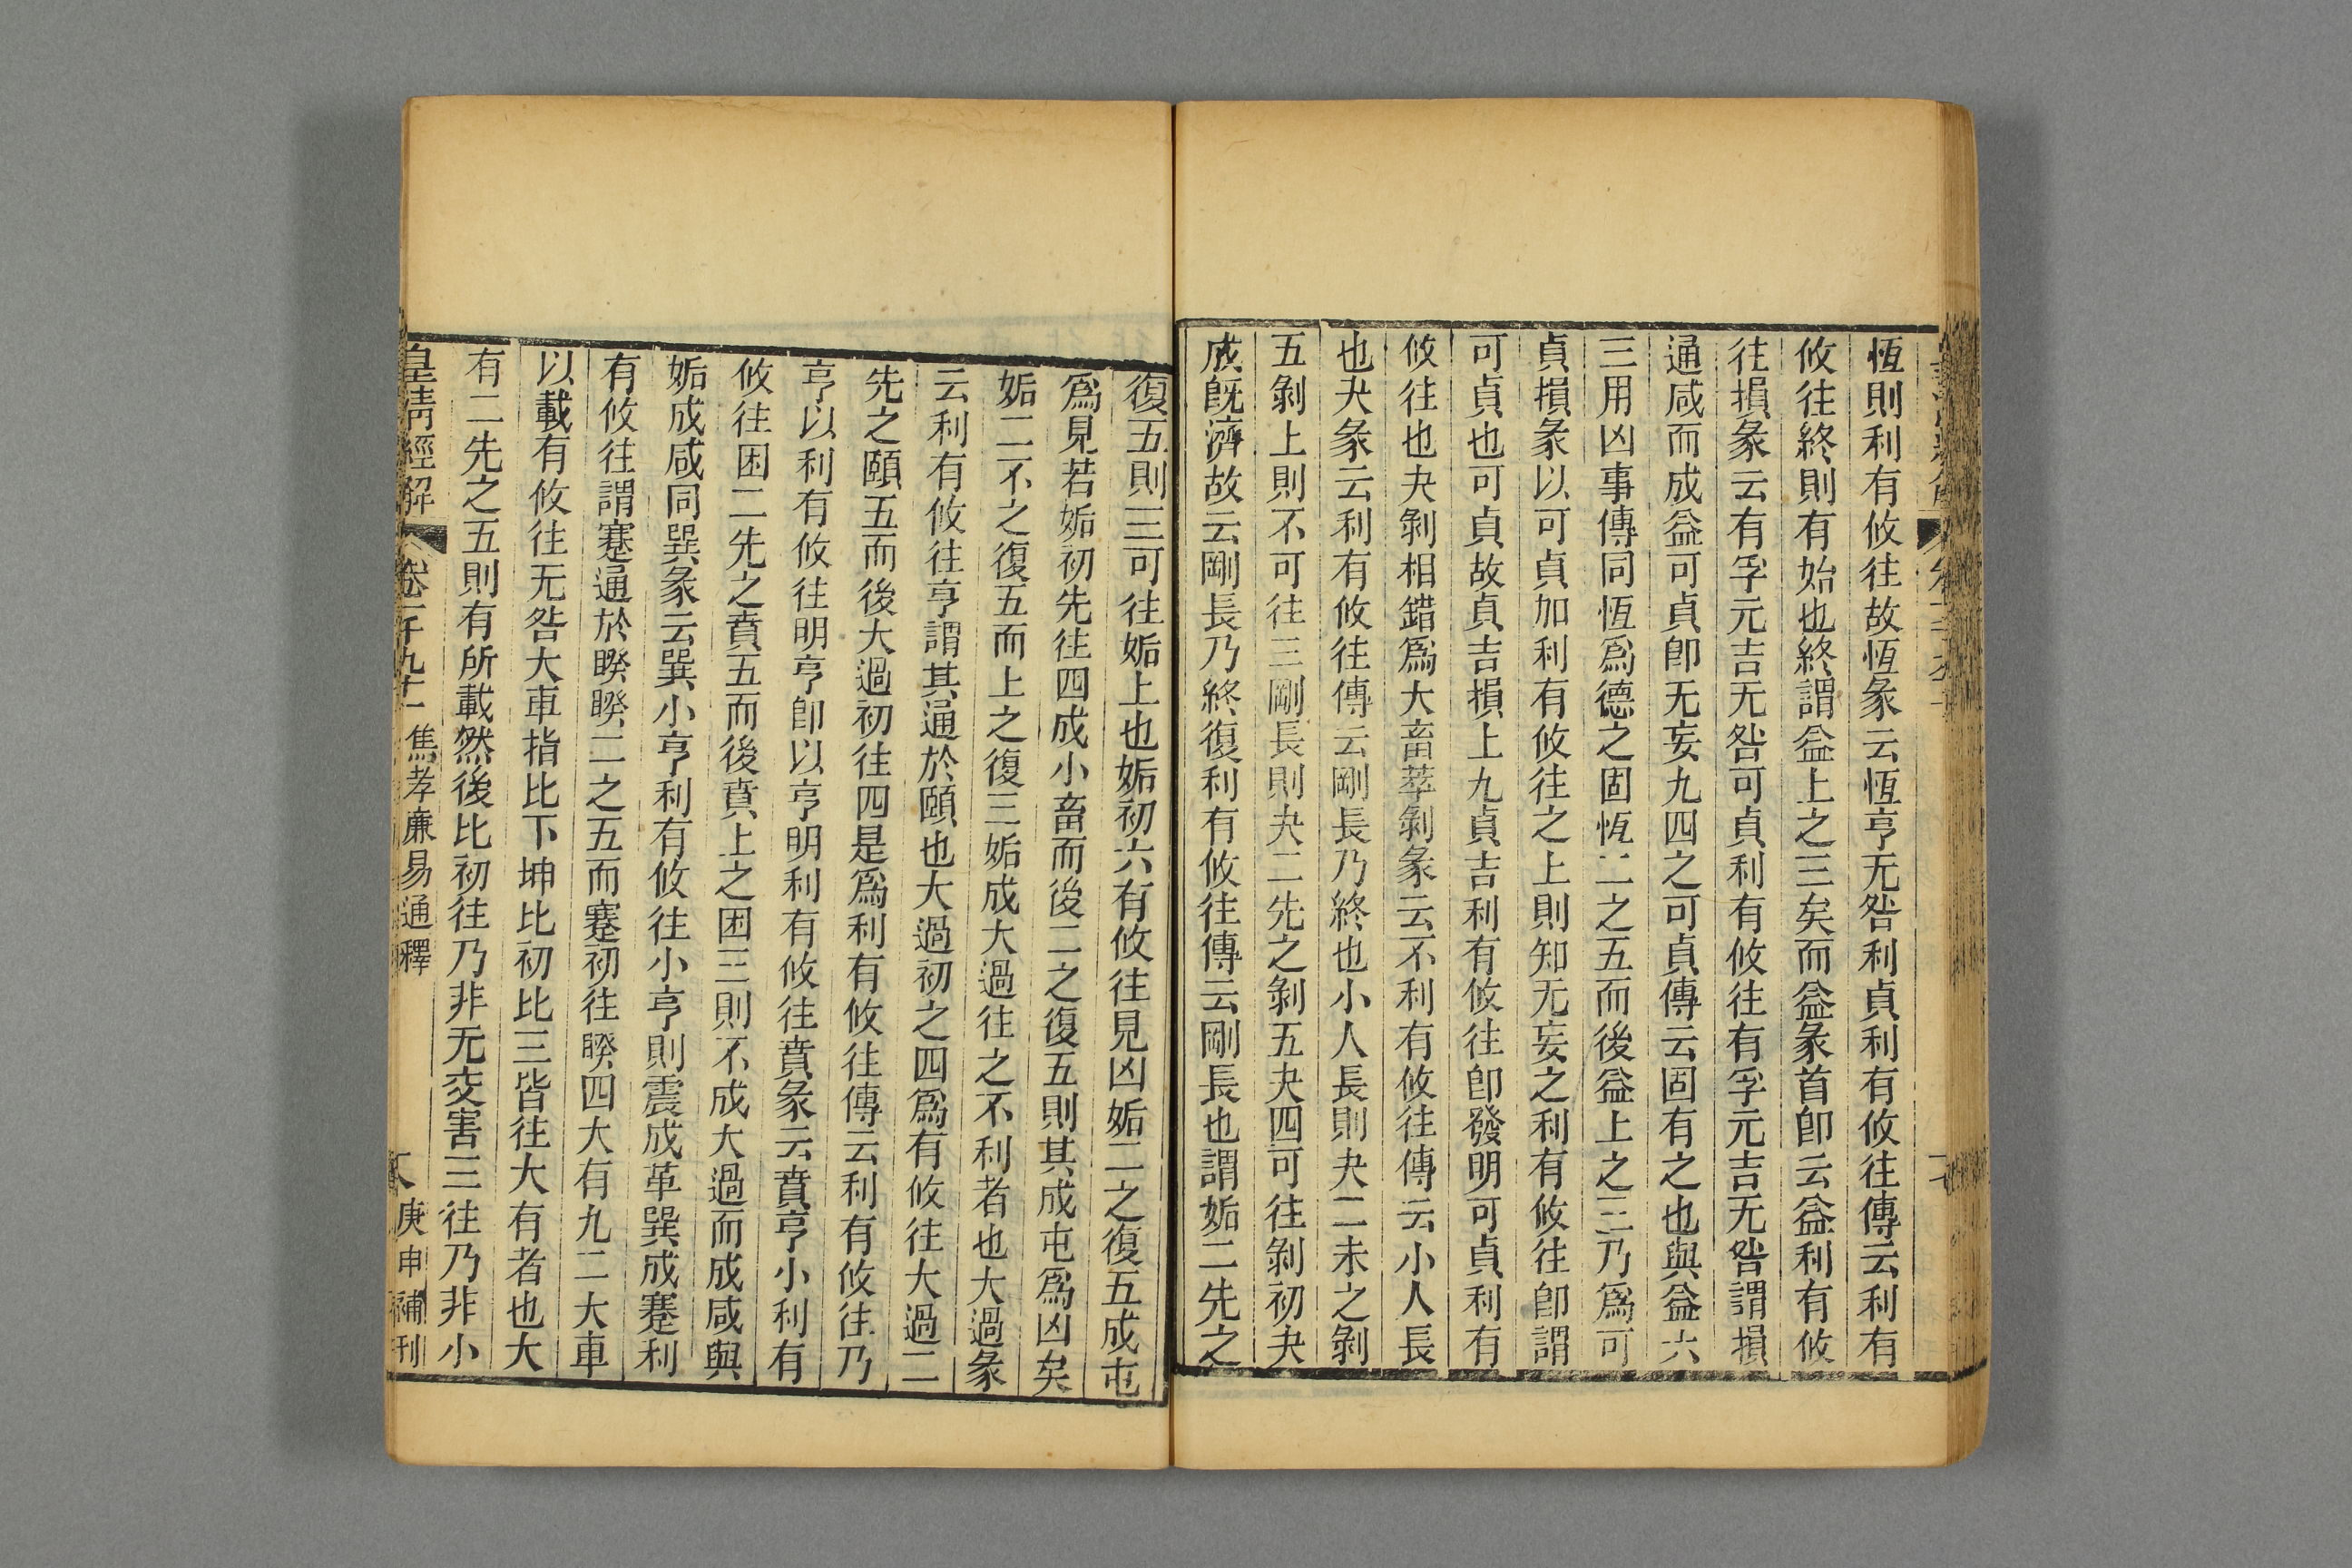 恆則利有攸往故恆彖云恆亨无咎利貞利有攸往傳云利有
攸往終則有始也終謂益上之三矣而益彖首卽云益利有攸
往損彖云有孚元吉无咎可貞利有攸往有孚元吉无咎謂損
通咸而成益可貞卽无妄九四之可貞傳云固有之也與益六
三用凶事傳同恆爲德之固恆二之五而後益上之三乃爲可
貞損彖以可貞加利有攸往之上則知无妄之利有攸往卽謂
可貞也可貞故貞吉損上九貞吉利有攸往卽發明可貞利有
攸往也夬剝相錯爲大畜萃剝彖云不利有攸往傳云小人長
也夬彖云利有攸往傳云剛長乃終也小人長則夬二未之剝
五剝上則不可往三剛長則夬二先之剝五夬四可往剝初夬
成旣濟故云剛長乃終復利有攸往傳云剛長也謂姤二先之
復五則三可往姤上也姤初六有攸往見凶姤二之復五成屯
爲見若姤初先往四成小畜而後二之復五則其成屯爲凶矣
姤二不之復五而上之復三姤成大過往之不利者也大過彖
云利有攸往亨謂其通於頤也大過初之四爲有攸往大過二
先之頤五而後大過初往四是爲利有攸往傳云利有攸往乃
亨以利有攸往明亨卽以亨明利有攸往賁彖云賁亨小利有
攸往困二先之賁五而後賁上之困三則不成大過而成咸與
姤成咸同巽彖云巽小亨利有攸往小亨則震成革巽成蹇利
有攸往謂蹇通於睽睽二之五而蹇初往睽四大有九二大車
以載有攸往无咎大車指比下坤比初比三皆往大有者也大
有二先之五則有所載然後比初往乃非无交害三往乃非小
皇清經解 卷一千九十一 焦孝廉易通釋 庚申補刊